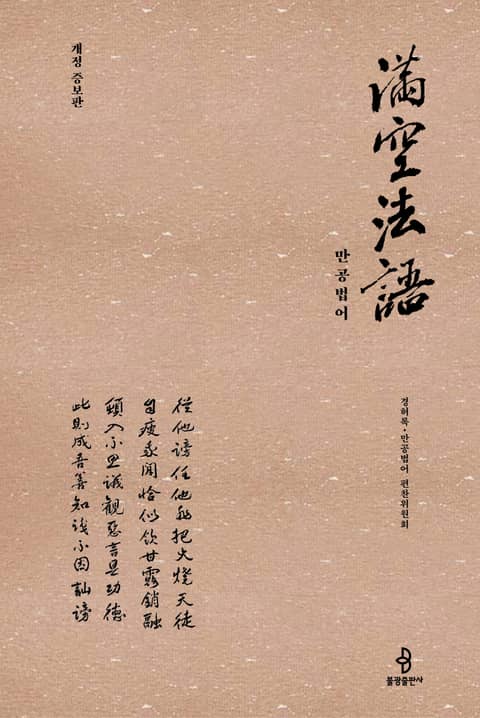 滿空法語
만공법어
개정 증보판
경허록·만공법어 편찬위원회
從他謗任他非把火燒天徒
自疲我聞恰似飲甘露銷融
頓入不思議觀惡言是功德
此則成吾善知識不因訕謗
불광출판사